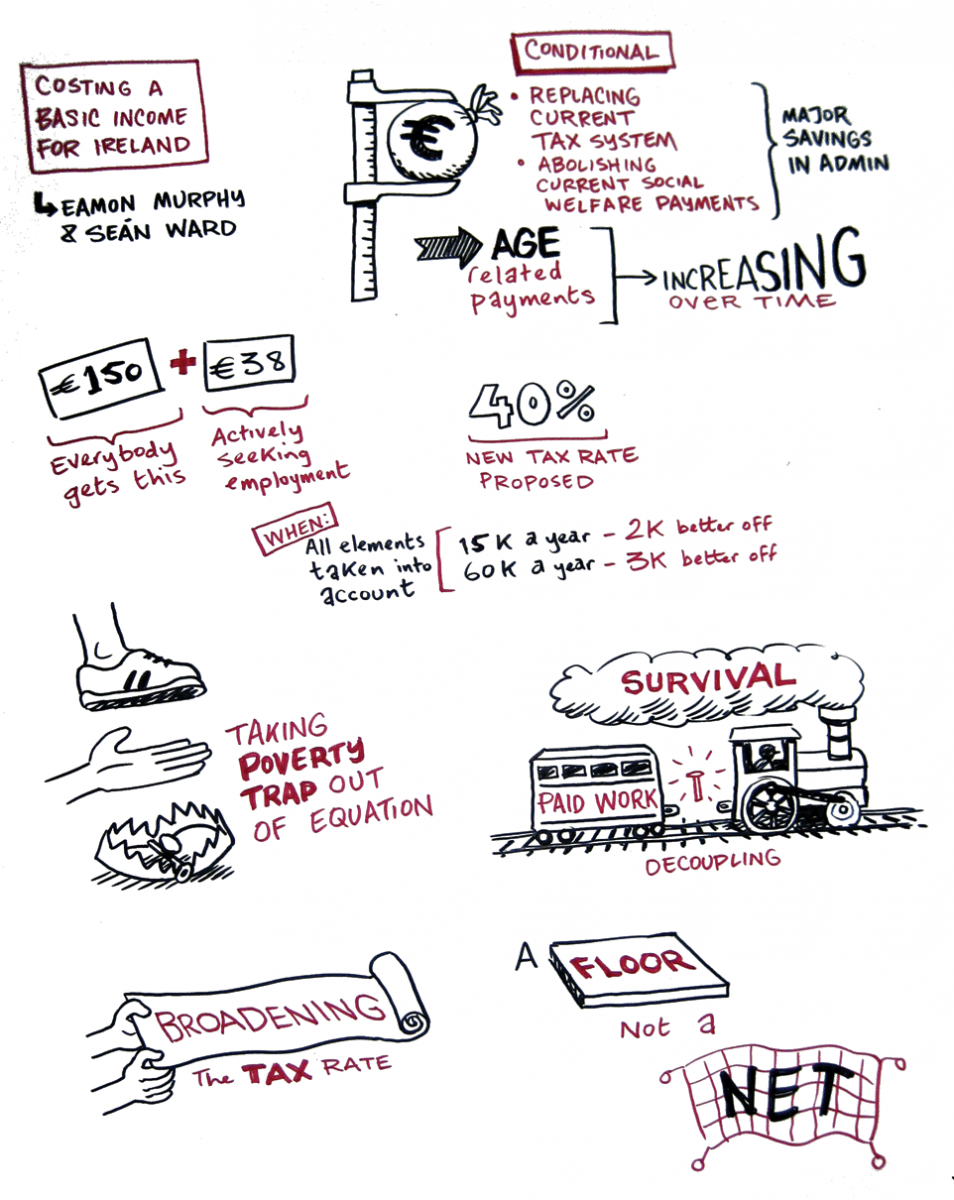 COSTING A
BASIC INCOME
FOR IRELAND
EAMON MURPHY
& SEÁN WARD
CONDITIONAL
• REPLACING
CURRENT
TAX SYSTEM
• ABOLISHING
CURRENT SOCIAL
WELFARE PAYMENTS
MAJOR
SAVINGS
IN ADMIN
€
AGE
related
payments
INCREASING
OVER TIME
€150 + €38
Everybody
gets this
Actively
seeking
employment
40%
NEW TAX RATE
PROPOSED
WHEN:
All elements
taken into
account
15K a year - 2K better off
60K a year - 3K better off
TAKING
POVERTY
TRAP OUT
OF EQUATION
SURVIVAL
PAID WORK
DECOUPLING
BROADENING
The TAX RATE
A FLOOR
Not a
NET